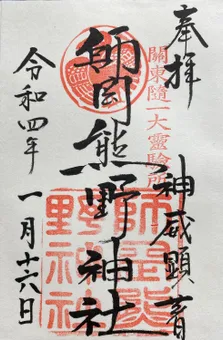 奉拝
神威顕著
關東随一大靈驗所
師岡熊野神社
師岡熊
野神社
令和四年
一月十六日